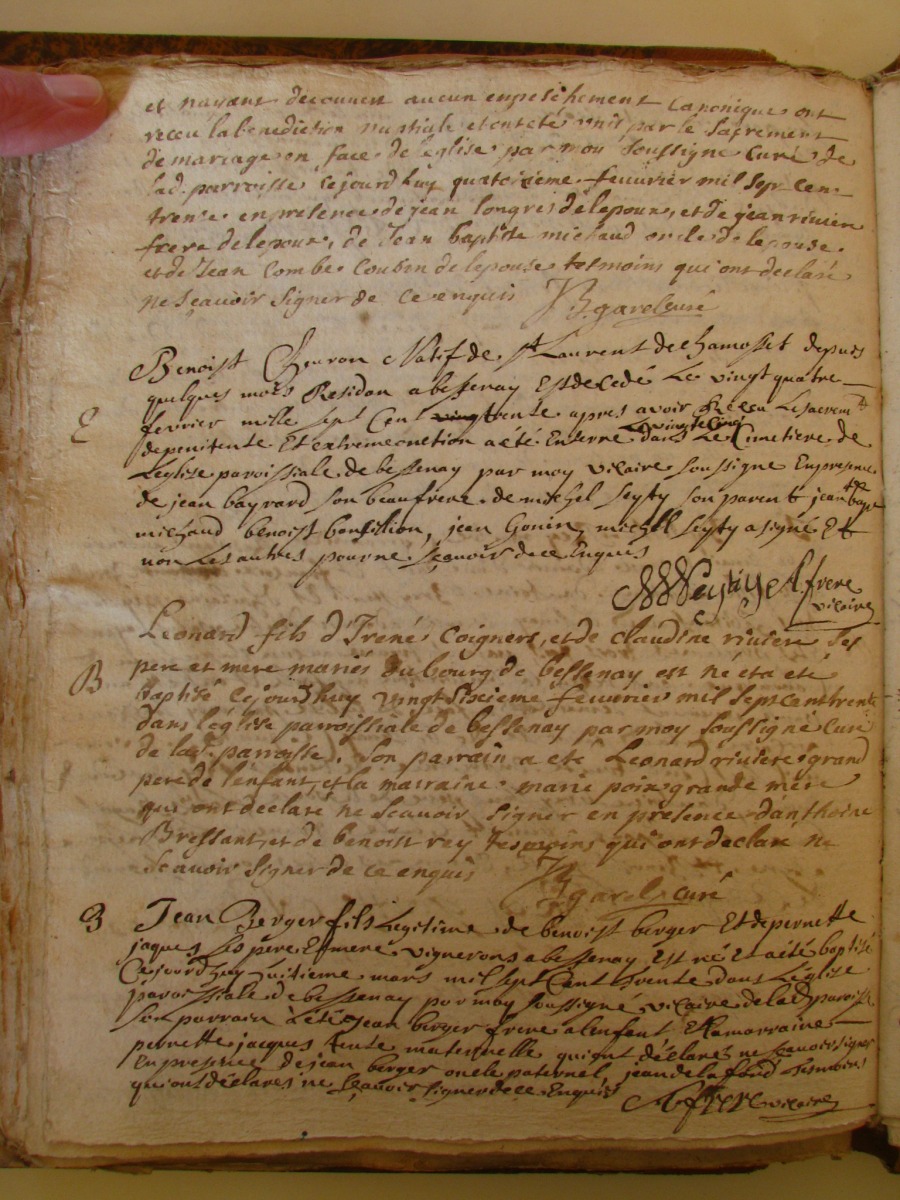 et nayant decouvert aucun enpeschement canonique ont
receu la benediction nuptiale et ont eté unis par le sacrement
de mariage en face de leglise par moy soussigne curé de
lad. parroisse cejourdhuy quatorzieme feuvrier mil sept cen
trente en presence de jean longres delepoux, et de jean rivier
frere delepoux, de Jean baptiste michaud oncle de lepouse
et de Jean Combe Cousin de lepouse tesmoins qui ont declaré
ne scauoir signer de ce enquis garel curé
Benoist Neuron Natif de st Laurent de chamosset depuis
quelques mois Residon a bessenay Est decedé Le vingt quatre
E
fevrier mille sept Cent vingt trente apres avoir Recu Le sacremts
Le vingt cinq
de penitente Et extreme onction a été Enterré dans Le Cimetiere de
Leglise paroissiale de bessenay par moy vicaire soussigne En presence
de jean bayrard son beaufrere de michel seyty son parent jean bapt
michaud benoist bonfilion, jean Gonin michel seyty a signé Et
non Les autres pour ne sçauoir de ce Enquis
M Seytiy A frere
vicaire
B
Leonard fils d'Irené Coigners, et de claudine riviere ses
pere et mere mariés du bourg de bessenay est né et a eté
baptisé cejourdhuy vingt sixieme feuvrier mil sept cent trente
dans léglise parroissiale de bessenay par moy soussigné curé
de lad. parroisse, son parrain a eté Leonard riviere grand
pere de l'enfant, et la marraine marie poix grande mere
qui ont declaré ne scauoir signer en presence d'anthoine
Bressant, et de benoist rey tesmoins qui ont declaré ne
scauoir signer de ce enquis garel curé
B
Jean Berger fils Legitime de benoist berger Et de pernette
jaques ses pére Et mere vignerons a bessenay Est né Et a été baptisé
Cejourdhuy huitieme mars mil sept Cent trente dans L'église
paroissiale de bessenay par moy soussigné vicaire de lad paroisse
son parrain a été Jean berger frere a lenfant Et la marraine
pernette jacques tente maternelle qui ont déclarés ne sçauoir signer
En presence de jean berger oncle paternel jean de la fond Tesmoins
qui ont déclares ne sçauoir signer de ce Enquis A frere vicaire